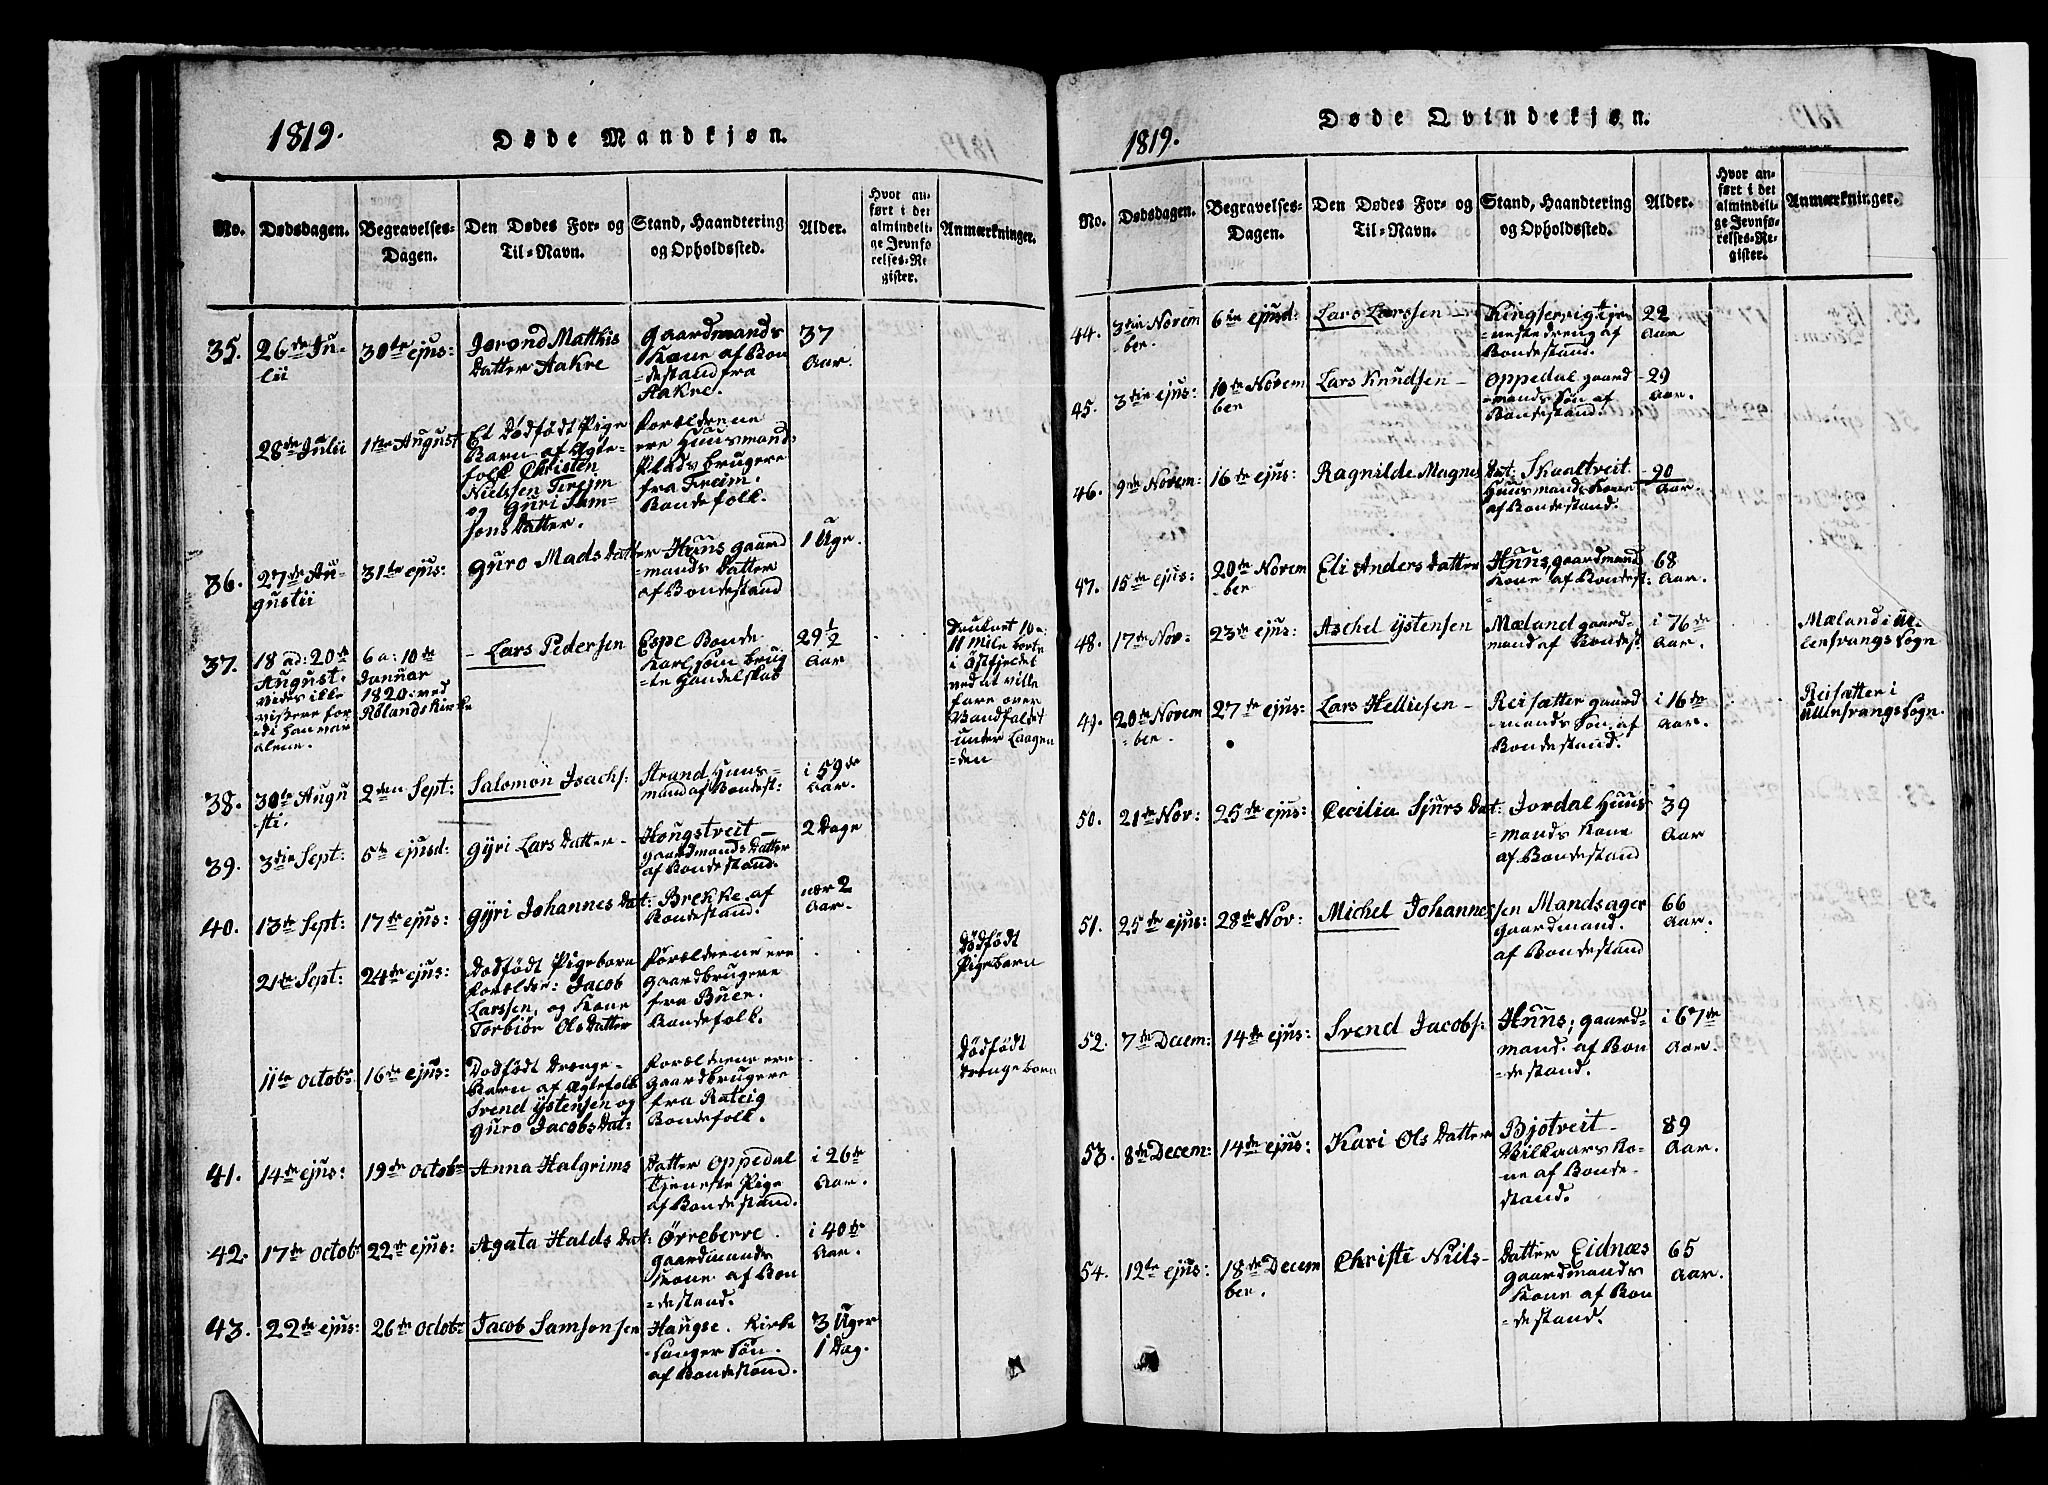 1819.
Døde Mandkjøn.
No.
Dødsdagen.
Begravelses-
Dagen.
Den Dødes For- og
Til-Navn.
Stand, Haandtering
og Opholdssted.
Alder.
Hvor an-
ført i det
almindeli-
ge Jevnfø
relses-Re
gister.
Anmærkninger.
35.
26de Ju-
lii
30te ejus:
Jorond Matthis
Datter Aakre
Gaardmands
Kone af Bon
=destand fra
Aakre.
37
Aar.
28de Julii
1te August
Et Dødfödt Pige
Barn af Ægte-
folk Christen
Nielssen Trejm
og Guri Sam-
sons Datter.
Forældrene
ere Huusmand
Plads brugere
fra Treim.
Bondefolk.
36.
27de Au-
gustii
31te ejus:
Guro Mads Datt
er Huus gaard
=mands Datter
af Bondestand
1 Uge.
37.
18 ad: 20de
August.
vides ikke
vissere for
=di han var
alene.
6 a: 10de
Januar
1820: ved
Rølands Kirke
- Lars Pedersen
Espe Bonde
Karl som brug
=te Handelskab
29½
Aar
Druknet 10 a:
11 Mile borte
i Östfjeldet
ved at ville
fare over
Vandfaldet
under Laagen
=den
38.
30te Augu
sti.
2den Sept:
Salomon Isachs:
Strand Huus-
mand af Bondest:
i 59de
Aar.
39.
3die Sept:
5te ejusd:
Gÿri Lars Datter -
Hougstveit -
gaardmands Datter
af Bondestand.
2 Dage
40.
13de Sept:
17de ejus:
Gÿri Johannes Dat:
Brekke af
Bondestand.
nær 2
Aar.
21de Sept:
24de ejus:
Dodfödt Pigebarn
Forældre: Jacob
Larssen, og Kone
Torbiör Ols Datter
Forældrene ere
Gaardbrugere
fra Buer.
Bondefolk.
Dödfödt
Pigebarn
11te Octobr.
16de ejus:
Dodfödt Drenge-
Barn af Ægtefolk
Svend Ÿstensen og
Guro Jacobs Dat:
Forældrene ere
Gaardbrugere
fra Rateig
Bondefolk.
Dödfödt
Drengebarn
41.
14de ejus:
19de Octobr
Anna Halgrims
Datter Oppedal
Tjeneste Pige
af Bondestand.
i 26de
Aar.
42.
17de Octobr
22de ejus:
Agata Halds Dat:
Örreberre.
Gaardmands
Kone af Bon
=destand.
i 40de
Aar.
43.
22de ejus:
26de Octobr
Jacob Samsonsen
Haugse. Kirke
-sanger Søn.
af Bondestand.
3 Uger
1 Dag.
1819.
Døde Qvindekjøn.
No.
Dødsdagen.
Begravelses-
Dagen.
Den Dødes For- og
Til-Navn.
Stand, Haandtering
og Opholdssted.
Alder.
Hvor an-
ført i det
almindeli-
ge Jevnfø-
relses-Re-
gister.
Anmærkninger.
44.
3die Novem
ber.
6te ejusd:
Lars Larssen -
Kingservig tje
=nestedreng af
Bondestand.
22
Aar
45.
3die ejus:
10de Novem
ber
Lars Knudsen -
Oppedal gaard
=mands Søn af
Bondestand.
29
Aar.
46.
9de Novem:
16de ejus:
Ragnilde Magnes
Dat: Skaltveit
Huusmands Kone
af Bondestand.
90
Aar.
47.
15de ejus:
20de Novem
-ber
Eli Anders Datter
Huus, gaardmand
Kone af Bondest:
68
Aar.
48.
17de Nov:
23de ejus:
Aschel Ÿstensen
Mæland gaard-
mand af Bondest.
i 76de
Aar.
Mæland i Ul-
lensvangs Sogn
49.
20de Novem
=ber.
27de ejus:
Lars Helliesen -
Reisætter gaard
=mands Søn. af
Bondestand.
i 16de
Aar.
Reisætter i
Ullensvangs Sogn.
50.
21de Nov:
25de ejus:
Cecilia Sjurs Dat:
Jordal Huus
=mands Kone
af Bondestand
39
Aar
51.
25de ejus:
28de Nov:
Michel Johannes
sen Mandsager
gaardmand.
af Bondestand
66
Aar.
52.
7de Decem:
14de ejus:
Svend Jacobs:
Huus; gaard-
mand. af Bon
=destand.
i 67de
Aar.
53.
8de Decem:
14de ejus:
Kari Ols Datter
Bjotveit -
Vilkaars Ko-
ne af Bonde-
stand.
89
Aar.
54.
12te ejus:
18de Decem
ber.
Christi Niels-
Datter Eidnæs
Gaardmands
Kone af Bon
=destand.
65
Aar.